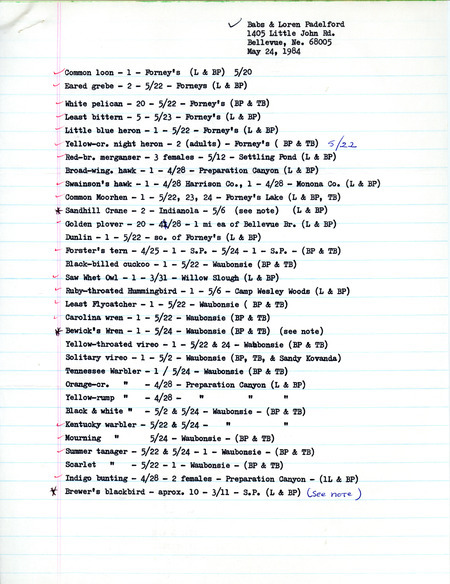 Babs & Loren Padelford
1405 Little John Rd.
Bellevue, Ne. 68005
May 24, 1984
Common loon - 1 - Forney's (L & BP) 5/20
Eared grebe - 2 - 5/22 - Forneys (L & BP)
White pelican - 20 - 5/22 - Forney's (BP & TB)
Least bittern - 5 - 5/23 - Forney's (L & BP)
Little blue heron - 1 - 5/22 - Forney's (L & BP)
Yellow-cr. night heron - 2 (adults) - Forney's ( BP & TB) 5/22
Red-br. merganser - 3 females - 5/12 - Settling Pond (L & BP)
Broad-wing. hawk - 1 - 4/28 - Preparation Canyon (L & BP)
Swainson's hawk - 1 - 4/28 Harrison Co., 1 - 4/28 - Monona Co. (L & BP)
Common Moorhen - 1 - 5/22, 23, 24 - Forney's Lake (L & BP, TB)
Sandhill Crane - 2 - Indianola - 5/6 (see note) (L & BP)
Golden plover - 20 - 4/28 - 1 mi ea of Bellevue Br. (L & BP)
Dunlin - 1 - 5/22 - so. of Forney's (L & BP)
Forster's tern - 4/25 - 1 - S.P. - 5/24 - 1 - S.P. - (BP & TB)
Black-billed cuckoo - 1 - 5/22 - Waubonsie (BP & TB)
Saw Whet Owl - 1 - 3/31 - Willow Slough (L & BP)
Ruby-throated Hummingbird - 1 - 5/6 - Camp Wesley Woods (L & BP)
Least Flycatcher - 1 - 5/22 - Waubonsie ( BP & TB)
Carolina wren - 1 - 5/22 - Waubonsie (BP & TB)
Bewick's Wren - 1 - 5/24 - Waubonsie (BP & TB) (see note)
Yellow-throated vireo - 1 - 5/22 & 24 - Waubonsie (BP & TB)
Solitary vireo - 1 - 5/2 - Waubonsie (BP, TB, & Sandy Kovanda)
Tennessee Warbler - 1 / 5/24 - Waubonsie (BP & TB)
Orange-cr. " - 4/28 - Preparation Canyon (L & BP)
Yellow-rump " - 4/28 - " " "
Black & white " - 5/2 & 5/24 - Waubonsie - (BP & TB)
Kentucky warbler - 5/22 & 5/24 - " "
Mourning " 5/24 - Waubonsie - (BP & TB)
Summer tanager - 5/22 & 5/24 - 1 - Waubonsie - (BP & TB)
Scarlet " - 5/22 - 1 - Waubonsie - (BP & TB)
Indigo bunting - 4/28 - 2 females - Preparation Canyon - (1L & BP)
Brewer's blackbird - aprox. 10 - 3/11 - S.P. (L & BP) (see note)